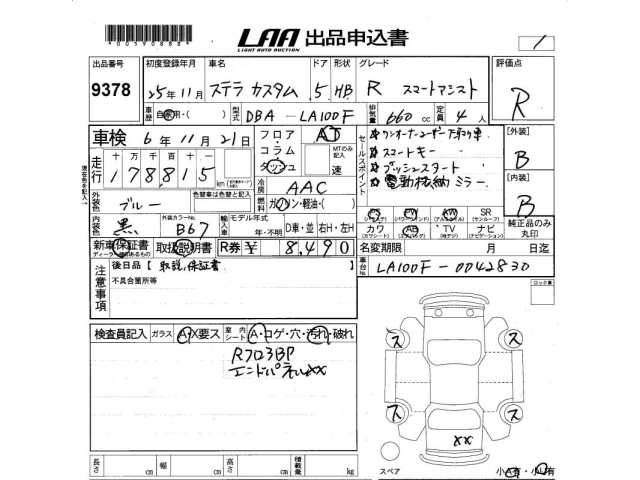 *00590888*
LAA 出品申込書
LIGHT AUTO AUCTION
1
出品番号 9378
初度登録年月 25年11月
車名 ステラ カスタム
ドア 5
形状 HB
グレード R スマートアシスト
評価点 R
車歴 自家用・( )
型式 DBA - LA100F
排気量 660 cc
定員 4 人
車検 6年 11月 21日
フロア・コラム・ダッシュ
AT
MTのみ記入 速
セールスポイント
ワンオーナーユーザー下取り車
スマートキー
プッシュスタート
電動格納ミラー
[外装] B
[内装] B
走行 十万千百十
178815
現在色を記入
外装色 ブルー
色替車は色替と記入
冷房 AAC
燃料 ガソリン・軽油・( )
内装色 黒
外装カラーNo. B67
輸入車 モデル年式 年・不明
D車・並 右H・左H
PS PW AW SR
(サンルーフ)
カワ AB TV ナビ
(ナビゲーション)
純正品のみ丸印
新車保証書 取扱説明書
R券 ¥ 8,490
名変期限 月 日迄
注意事項
後日品 [ 取説、保証書
不具合箇所等
車台No. LA100F-0042830
ロック車
検査員記入 ガラス A・X要ス 室内シート A・コゲ・穴・汚れ・破れ
R702BP
エンドパネルXX
ス ス
ス ス
XX
スペア
小A有・小U有
長さ cm 幅 cm 高さ cm 積載量 kg